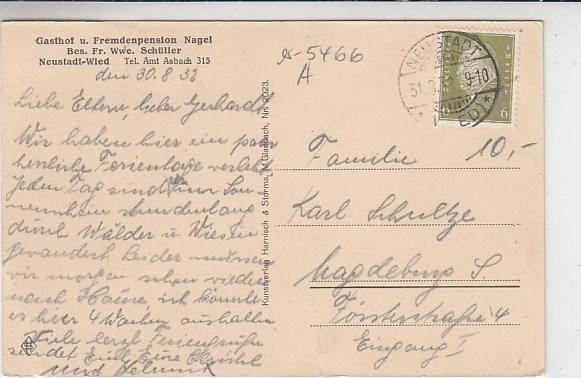 Gasthof u. Fremdenpension Nagel
Bes. Fr. Wwe. Schüller
Neustadt-Wied Tel. Amt Asbach 315
den 30.8.32
Liebe Eltern, lieber Gerhardt
Wir haben hier ein paar
herrliche Ferientage verlebt
Jeden Tag sind wir im Son-
nenschein stundenlang
durch Wälder u. Wiesen
gewandert. Leider müssen
wir morgen schon wieder
nach Hause, ich könnte
es hier 4 Wochen aushalten
Viele herzl. Feriengrüße
sendet Euch Eure
und Helmut
Kunstverlag Harnisch & Storms, M.Gladbach, Nr. 2023.
5466
A
NEUSTADT
31.8.
9-10
6
10,-
Familie
Karl Schultze
Magdeburg S.
Försterstraße 4
Eingang I